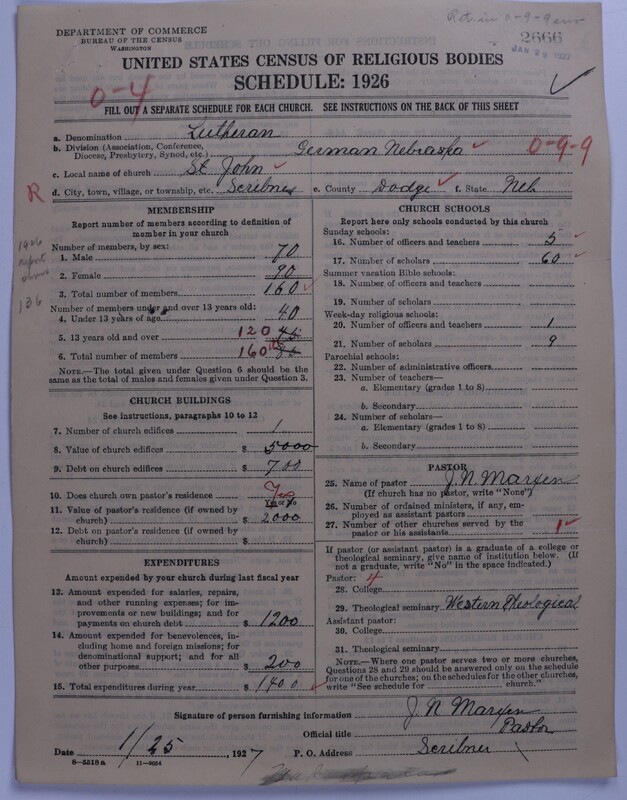 DEPARTMENT OF COMMERCE
BUREAU OF THE CENSUS
WASHINGTON
2666
JAN 29 1927
UNITED STATES CENSUS OF RELIGIOUS BODIES
SCHEDULE: 1926
0-4
FILL OUT A SEPARATE SCHEDULE FOR EACH CHURCH. SEE INSTRUCTIONS ON THE BACK OF THIS SHEET
a. Denomination Lutheran
b. Division (Association, Conference, Diocese, Presbytery, Synod, etc.) German Nebraska 0-9-9
c. Local name of church St. John
R d. City, town, village, or township, etc. Scribner e. County Dodge f. State Neb
MEMBERSHIP
Report number of members according to definition of member in your church
1926 report shows 136
Number of members, by sex:
1. Male 70
2. Female 90
3. Total number of members 160
Number of members under and over 13 years old:
4. Under 13 years of age 40
5. 13 years old and over 120
6. Total number of members 160
NOTE.—The total given under Question 6 should be the same as the total of males and females given under Question 3.
CHURCH BUILDINGS
See instructions, paragraphs 10 to 12
7. Number of church edifices 1
8. Value of church edifices $ 5000
9. Debt on church edifices $ 700
10. Does church own pastor's residence Yes
Yes or No
11. Value of pastor's residence (if owned by church) $ 2000
12. Debt on pastor's residence (if owned by church) $
EXPENDITURES
Amount expended by your church during last fiscal year
13. Amount expended for salaries, repairs, and other running expenses; for improvements or new buildings; and for payments on church debt $ 1200
14. Amount expended for benevolences, including home and foreign missions; for denominational support; and for all other purposes $ 200
15. Total expenditures during year $ 1400
CHURCH SCHOOLS
Report here only schools conducted by this church
Sunday schools:
16. Number of officers and teachers 5
17. Number of scholars 60
Summer vacation Bible schools:
18. Number of officers and teachers
19. Number of scholars
Week-day religious schools:
20. Number of officers and teachers 1
21. Number of scholars 9
Parochial schools:
22. Number of administrative officers
23. Number of teachers—
a. Elementary (grades 1 to 8)
b. Secondary
24. Number of scholars—
a. Elementary (grades 1 to 8)
b. Secondary
PASTOR
25. Name of pastor J. N. Marxen
(If church has no pastor, write "None")
26. Number of ordained ministers, if any, employed as assistant pastors
27. Number of other churches served by the pastor or his assistants 1
If pastor (or assistant pastor) is a graduate of a college or theological seminary, give name of institution below. (If not a graduate, write "No" in the space indicated.)
Pastor: 4
28. College
29. Theological seminary Western Theological
Assistant pastor:
30. College
31. Theological seminary
NOTE.—Where one pastor serves two or more churches, Questions 28 and 29 should be answered only on the schedule for one of the churches; on the schedules for the other churches, write "See schedule for church."
Signature of person furnishing information J. N. Marxen
Official title Pastor
Date 1/25, 1927 P. O. Address Scribner
8-5518a 11-9054